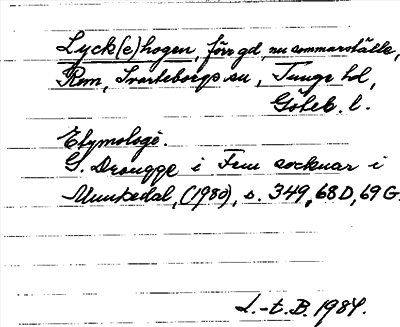 Lyck(e)hogen, förr gd, nu sommarställe,
Röm, Svarteborgs sn, Tunge hd,
Göteb. l.
Etymologi.
G. Drougge i Fem socknar i
Munkedal, (1980), s. 349, 68 D, 69 G.
I.-t. B. 1984.